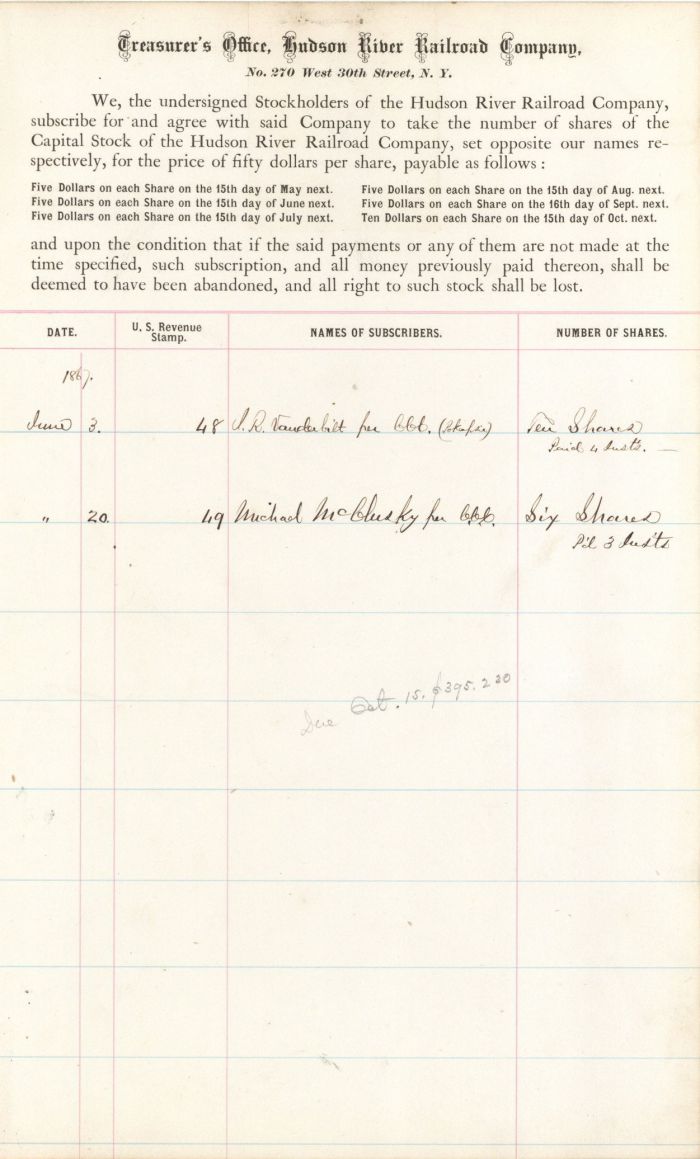 Treasurer's Office, Hudson River Railroad Company,
No. 270 West 30th Street, N. Y.
We, the undersigned Stockholders of the Hudson River Railroad Company,
subscribe for and agree with said Company to take the number of shares of the
Capital Stock of the Hudson River Railroad Company, set opposite our names re-
spectively, for the price of fifty dollars per share, payable as follows :
Five Dollars on each Share on the 15th day of May next. Five Dollars on each Share on the 15th day of Aug. next.
Five Dollars on each Share on the 15th day of June next. Five Dollars on each Share on the 16th day of Sept. next.
Five Dollars on each Share on the 15th day of July next. Ten Dollars on each Share on the 15th day of Oct. next.
and upon the condition that if the said payments or any of them are not made at the
time specified, such subscription, and all money previously paid thereon, shall be
deemed to have been abandoned, and all right to such stock shall be lost.
DATE. U. S. Revenue Stamp. NAMES OF SUBSCRIBERS. NUMBER OF SHARES.
1867.
June 3. 48 Vanderbilt per Ten Shares
Paid 4 Insts.
" 20. 49 Michael McClusky per Six Shares
Pd 3 Insts
Due Oct. 15. $395.